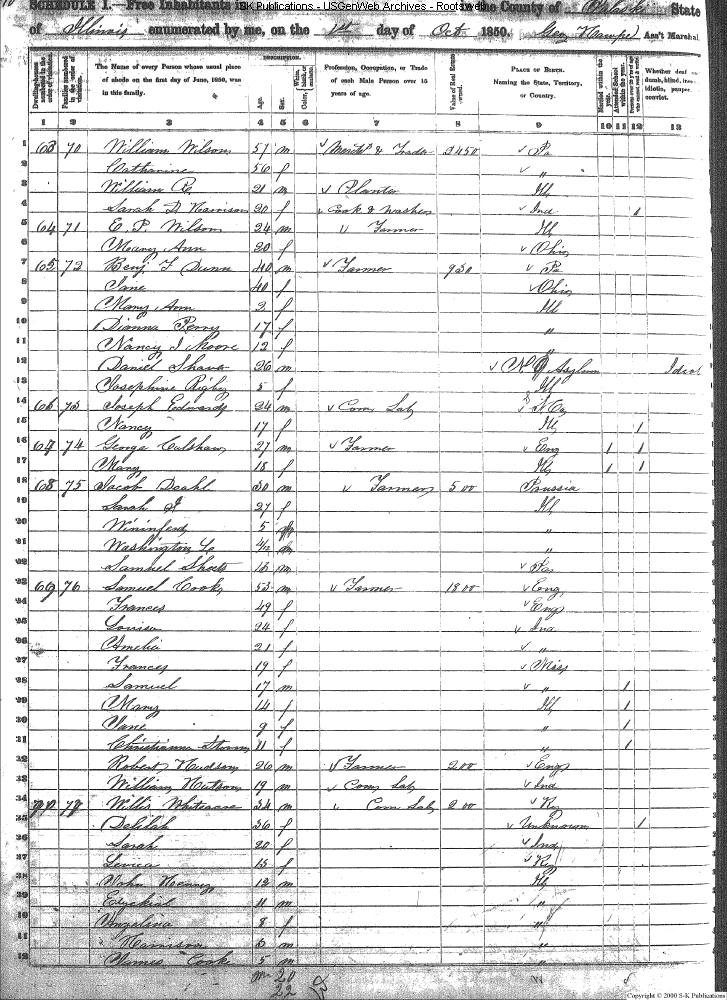 SCHEDULE I.—Free Inhabitants in the County of State
S-K Publications - USGenWeb Archives - Rootsweb
of Illinois enumerated by me, on the 1st day of Oct 1850. Ass't Marshal
DESCRIPTION.
The Name of every Person whose usual place of abode on the first day of June, 1850, was in this family.
Age.
Sex.
Profession, Occupation, or Trade of each Male Person over 15 years of age.
Value of Real Estate owned.
PLACE OF BIRTH.
Naming the State, Territory, or Country.
Married within the year.
Attended School within the year.
Whether deaf and dumb, blind, insane, idiotic, pauper or convict.
1 2 3 4 5 6 7 8 9 10 11 12 13
1 63 70 William Wilson 57 m & Trader 3450 Pa
2 Catharine 56 f "
3 William R. 21 m Planter Ill
4 Sarah D Harrison 20 f Cook & washer Ind /
5 64 71 E. P. Wilson 24 m Farmer Ill
6 Mary Ann 20 f Ohio
7 65 72 Benj F Dunn 40 m Farmer 950 Pa
8 Jane 40 f Ohio
9 Mary Ann 2 f Ill
10 Dianna Perry 17 f "
11 Nancy J Moore 12 f "
12 Daniel Shaver 26 m Asylum Idiot
13 Josephine Rigby 5 f Ill
14 66 73 Joseph Edwards 24 m Com Lab
15 Nancy 17 f Ill /
16 67 74 George Culshaw 27 m Farmer Eng / /
17 Mary 18 f Ill / /
18 68 75 Jacob Deahl 30 m Farmer 500 Prussia
19 Sarah 27 f Ill
20 5 "
21 Washington 4/12 m "
22 Samuel Sheets 16 m
23 69 76 Samuel Cook 53 m Farmer 1800 Eng
24 Frances 49 f Eng
25 Louisa 24 f Ind
26 Amelia 21 f "
27 Frances 19 f Miss
28 Samuel 17 m " /
29 Mary 14 f Ill /
30 Jane 9 f " /
31 Christianna Storm 11 f " /
32 Robert Hudson 26 m Farmer 200 Eng
33 William Hutson 19 m Com Lab Ind
34 77 Willis Whiteaare 34 m Com Lab 200 Ky
35 Delilah 36 f Unknown /
36 Sarah 20 f Ind
37 Levica 15 f Ky
38 John Henry 12 m Ill
39 Ezekial 11 m "
40 Angelina 8 f "
41 Harrison m "
42 James Cook 5 m "
20
22
Copyright © 2000 S-K Publications